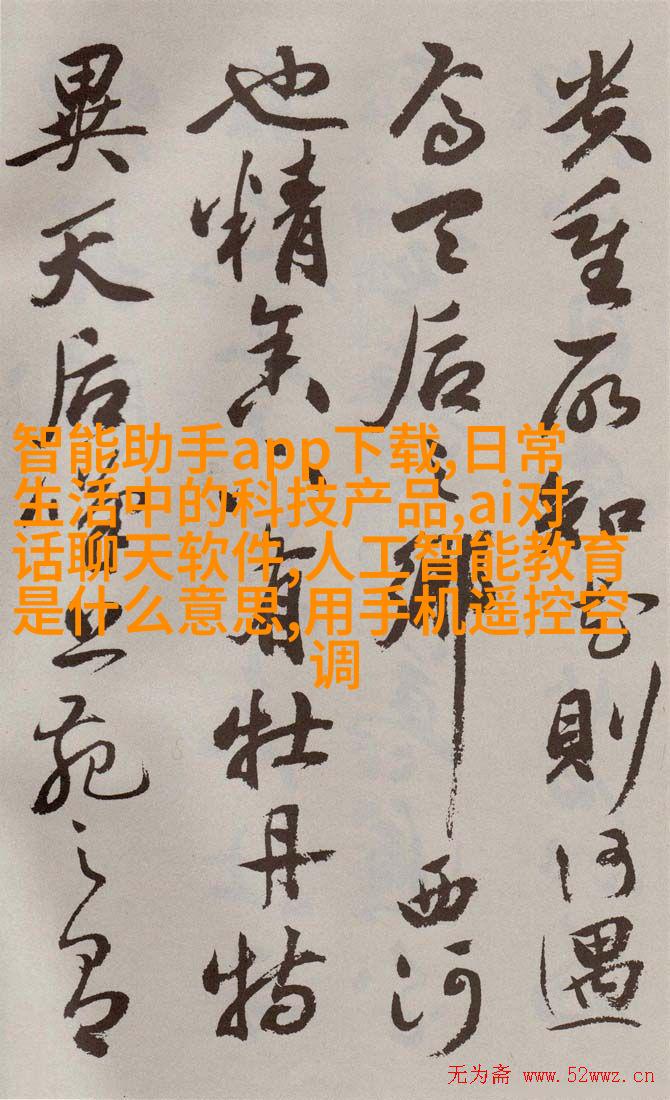 貴重所知花則何遇
焉天后之鄉西河
也精舍下有牡丹特
異天后嘆上苑之有
智能助手app下载,日常
生活中的科技产品,ai对
话聊天软件,人工智能教育
是什么意思,用手机遥控空
调
无为斋 www.52wwz.cn